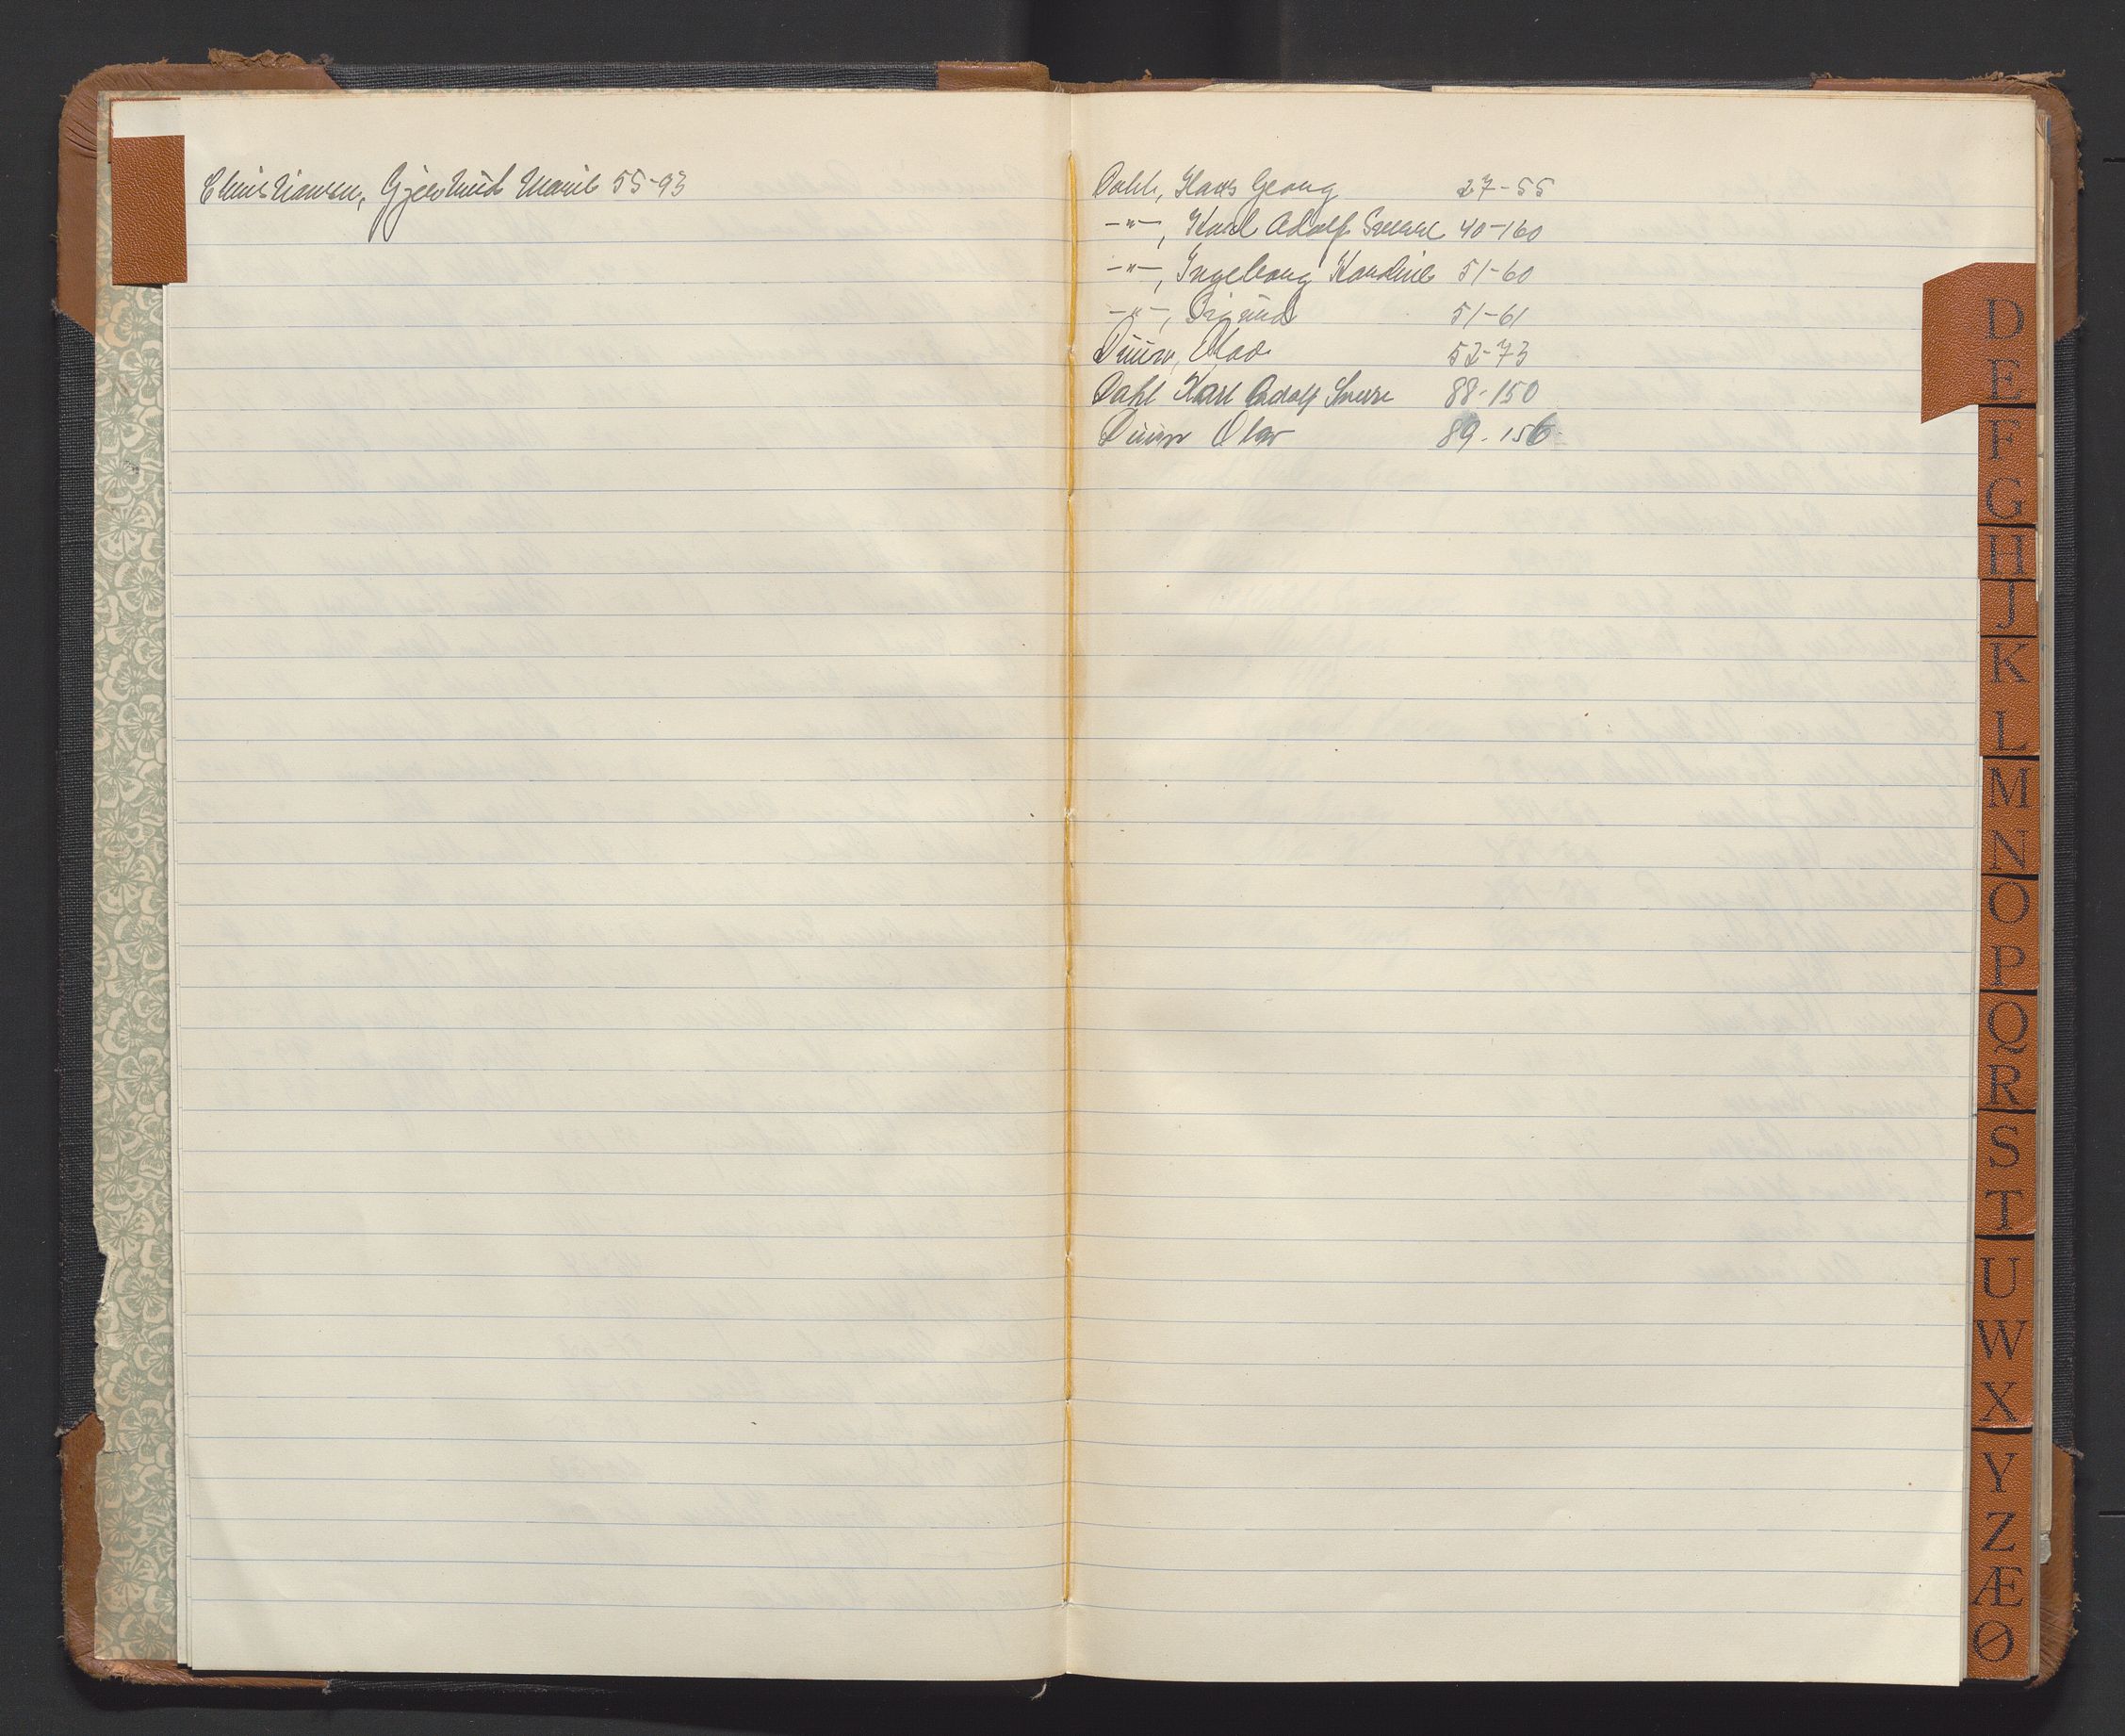 Christiansen, Gjertrud Marie 55-93
Dahl, Hans Georg 27-55
-"-, Karl Adolf Sverre 40-160
-"-, Ingeborg Kardine 51-60
-"-, Sigrund 51-61
Duun, Olav 52-73
Dahl Karl Adolf Sverre 88-150
Duun Olav 89-156
D
E
F
G
H
J
K
L
M
N
O
P
Q
R
S
T
U
W
X
Y
Z
Æ
Ø